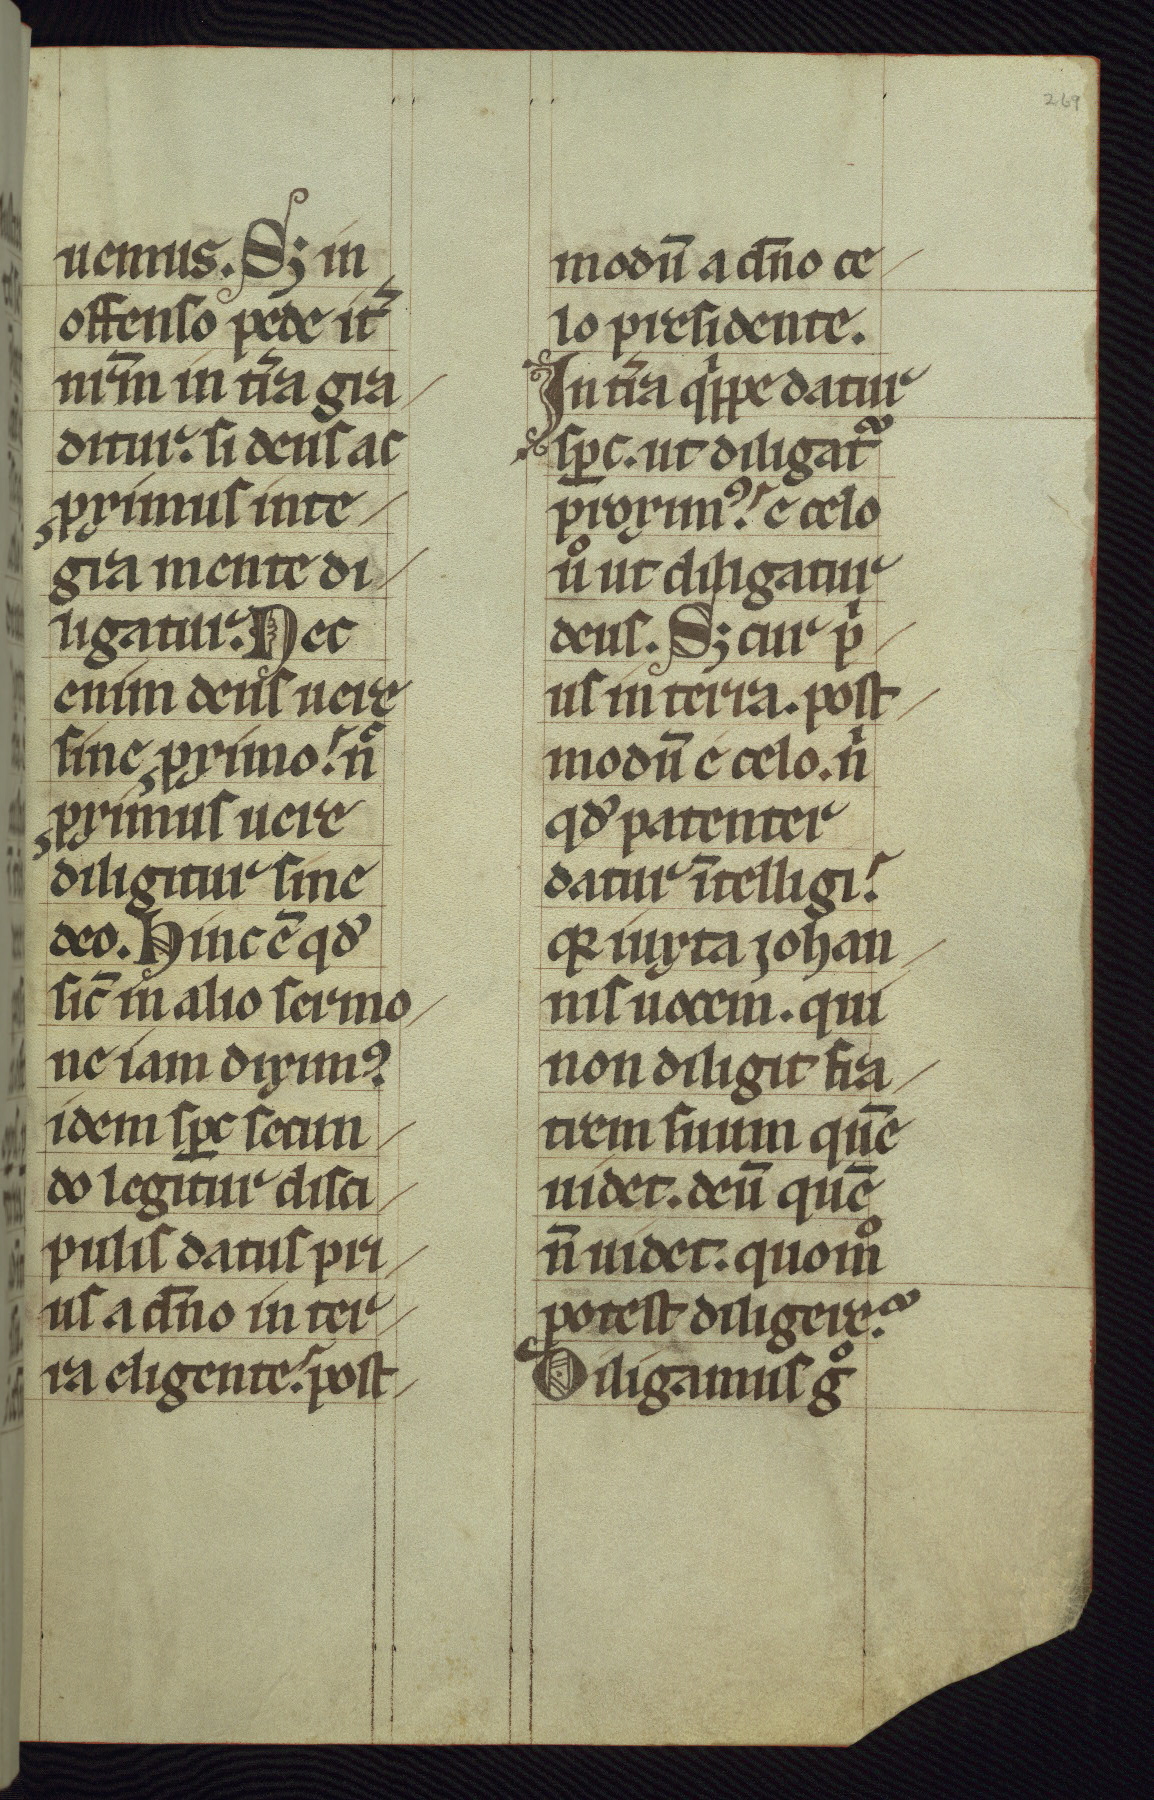 269
uenius. Sꝫ in
offenso pede it̾
nr̄m in tr̾a gra
ditur. si deus ac
ꝓximus inte
gra mente di
ligatur. Nec
enim deus uere
sine ꝓximo. nͨ
ꝓximus uere
diligitur sine
deo. Hinc ē qđ
sic̄ in alio sermo
ne iam diximꝰ
idem sp̄c secun
do legitur disci
pulis datus pri
us a dn̄o in ter
ra eligente. post
modū a dn̄o ce
lo presidente.
In tr̾a qͥppe datur
sp̄c. ut diligat᷑
proximꝰ. e celo
uͦ ut diligatur
deus. Sꝫ cur pͥ
us in terra. post
modū e celo. nͥ
qđ patenter
datur ītelligi.
qꝛ iuxta johan
nis uocem. qui
non diligit fra
trem suum quē
uidet. deū quē
n̄ uidet. quomͦ
potest diligere.
Diligamus gͦ